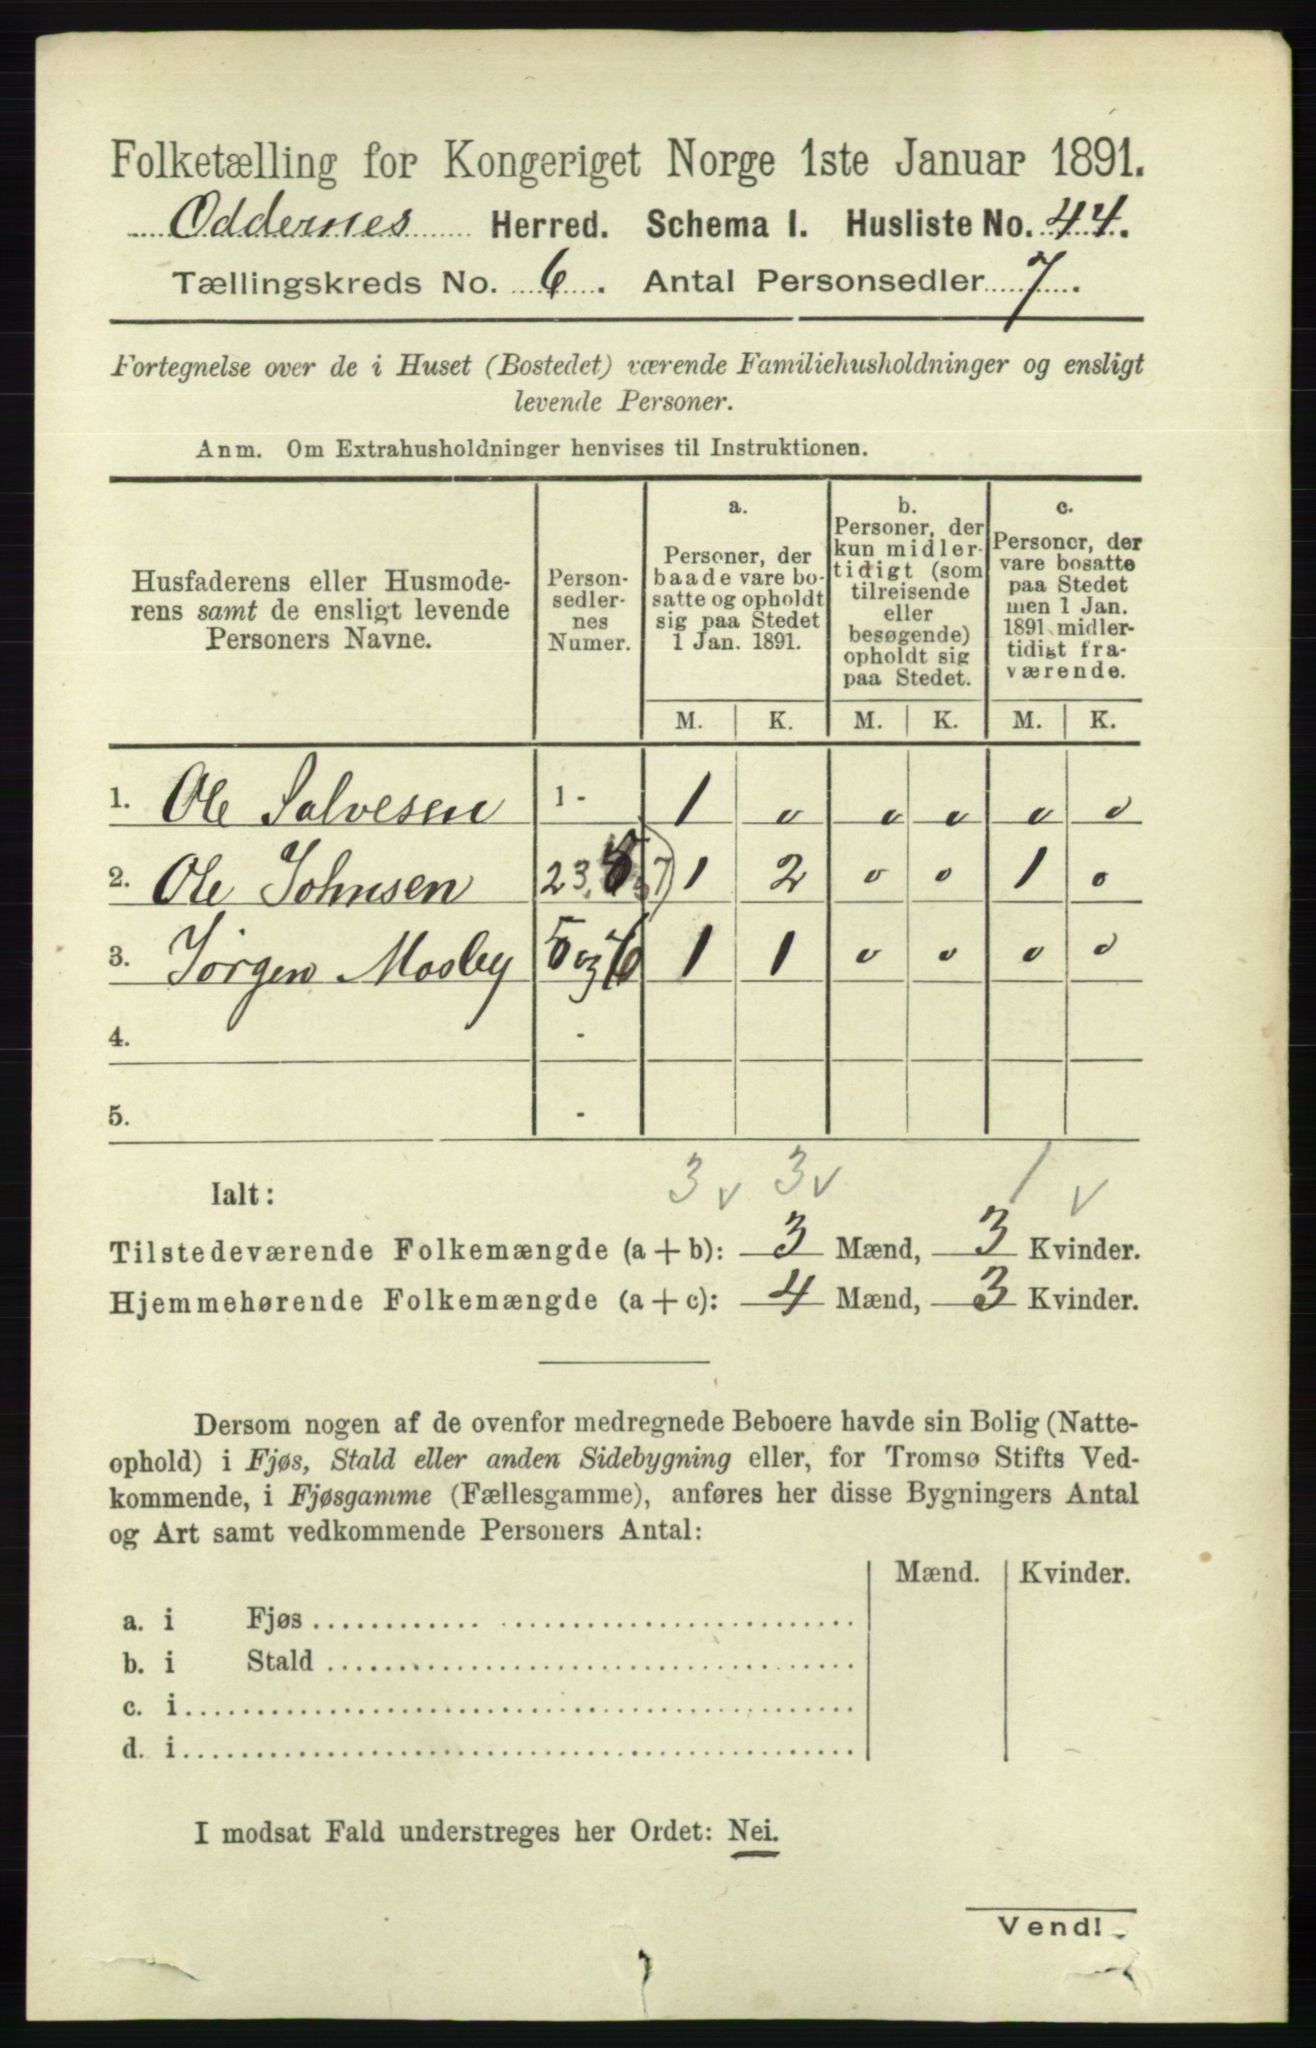 Folketælling for Kongeriget Norge 1ste Januar 1891.
Oddernes Herred. Schema I. Husliste No. 44.
Tællingskreds No. 6. Antal Personsedler 7.
Fortegnelse over de i Huset (Bostedet) værende Familiehusholdninger og ensligt
levende Personer.
Anm. Om Extrahusholdninger henvises til Instruktionen.
Husfaderens eller Husmode-
rens samt de ensligt levende
Personers Navne.
Person-
sedler-
nes
Numer.
a.
Personer, der
baade vare bo-
satte og opholdt
sig paa Stedet
1 Jan. 1891.
b.
Personer, der
kun midler-
tidigt (som
tilreisende
eller
besøgende)
opholdt sig
paa Stedet.
c.
Personer, der
vare bosatte
paa Stedet
men 1 Jan.
1891 midler-
tidigt fra-
værende.
M. K. M. K. M. K.
1. Ole Salvesen 1 - 1 0 0 0 0 0
2. Ole Johnsen 23. 7) 1 2 0 0 1 0
3. Jørgen Mosby 5 og 6 1 1 0 0 0 0
4. -
5. -
3 v 3 v 1 v
Ialt:
Tilstedeværende Folkemængde (a + b): 3 Mænd, 3 Kvinder.
Hjemmehørende Folkemængde (a + c): 4 Mænd, 3 Kvinder.
Dersom nogen af de ovenfor medregnede Beboere havde sin Bolig (Natte-
ophold) i Fjøs, Stald eller anden Sidebygning eller, for Tromsø Stifts Ved-
kommende, i Fjøsgamme (Fællesgamme), anføres her disse Bygningers Antal
og Art samt vedkommende Personers Antal:
Mænd. Kvinder.
a. i Fjøs
b. i Stald
c. i
d. i
I modsat Fald understreges her Ordet: Nei.
Vend!